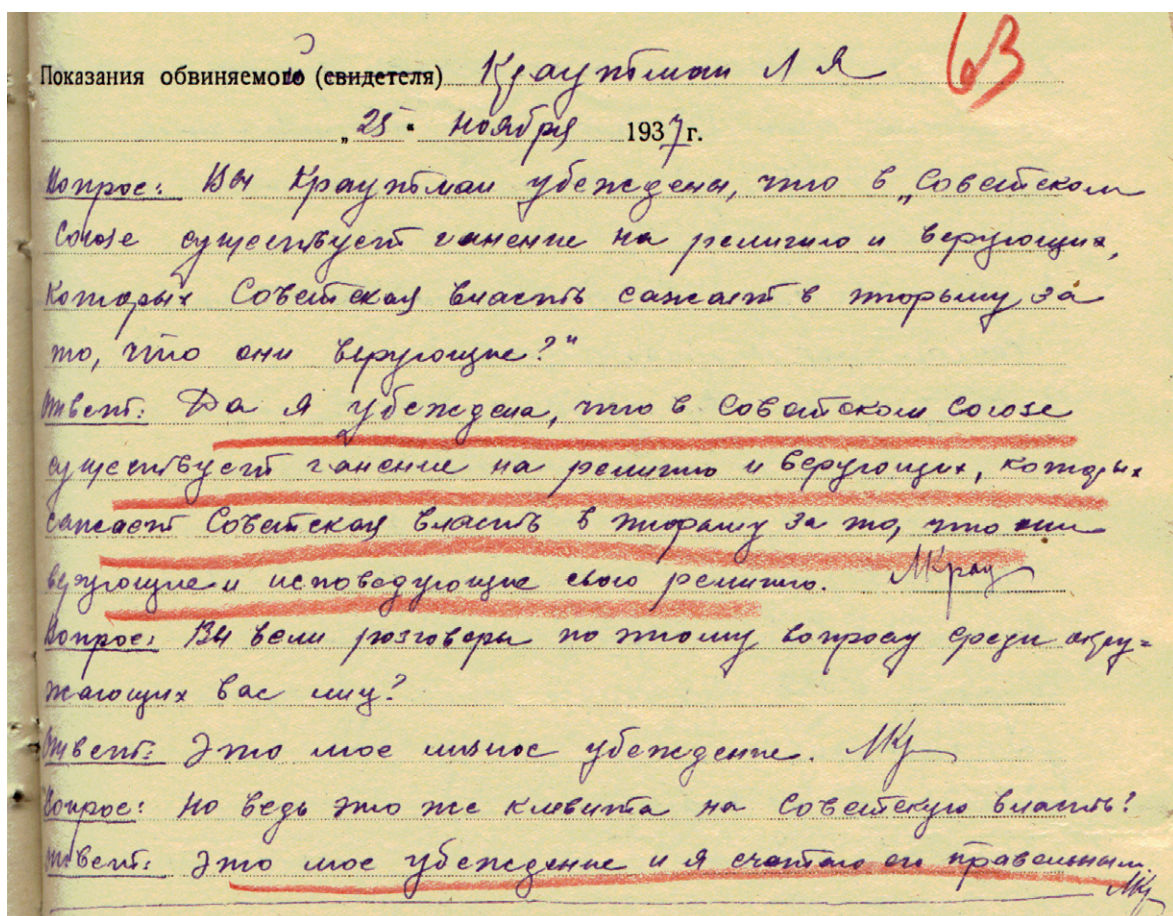 63
Показания обвиняемой (свидетеля) Краутман Л Я
„25“ ноября 1937 г.
Вопрос: Вы Краутман убеждены, что в „Советском
Союзе существует ганение на религию и верующих,
которых Советская власть сажает в тюрьму за
то, что они верующие?"
Ответ: Да я убеждена, что в Советском Союзе
существует ганение на религию и верующих, которых
сажает Советская власть в тюрьму за то, что они
верующие и исповедующие свою религию. МКрау
Вопрос: Вы вели розговоры по этому вопросу среди окру=
жающих вас лиц?
Ответ: Это мое личное убеждение. МКр
Вопрос: Но ведь это же клевита на Советскую власть?
Ответ: Это мое убеждение и я считаю его правельным. МКр